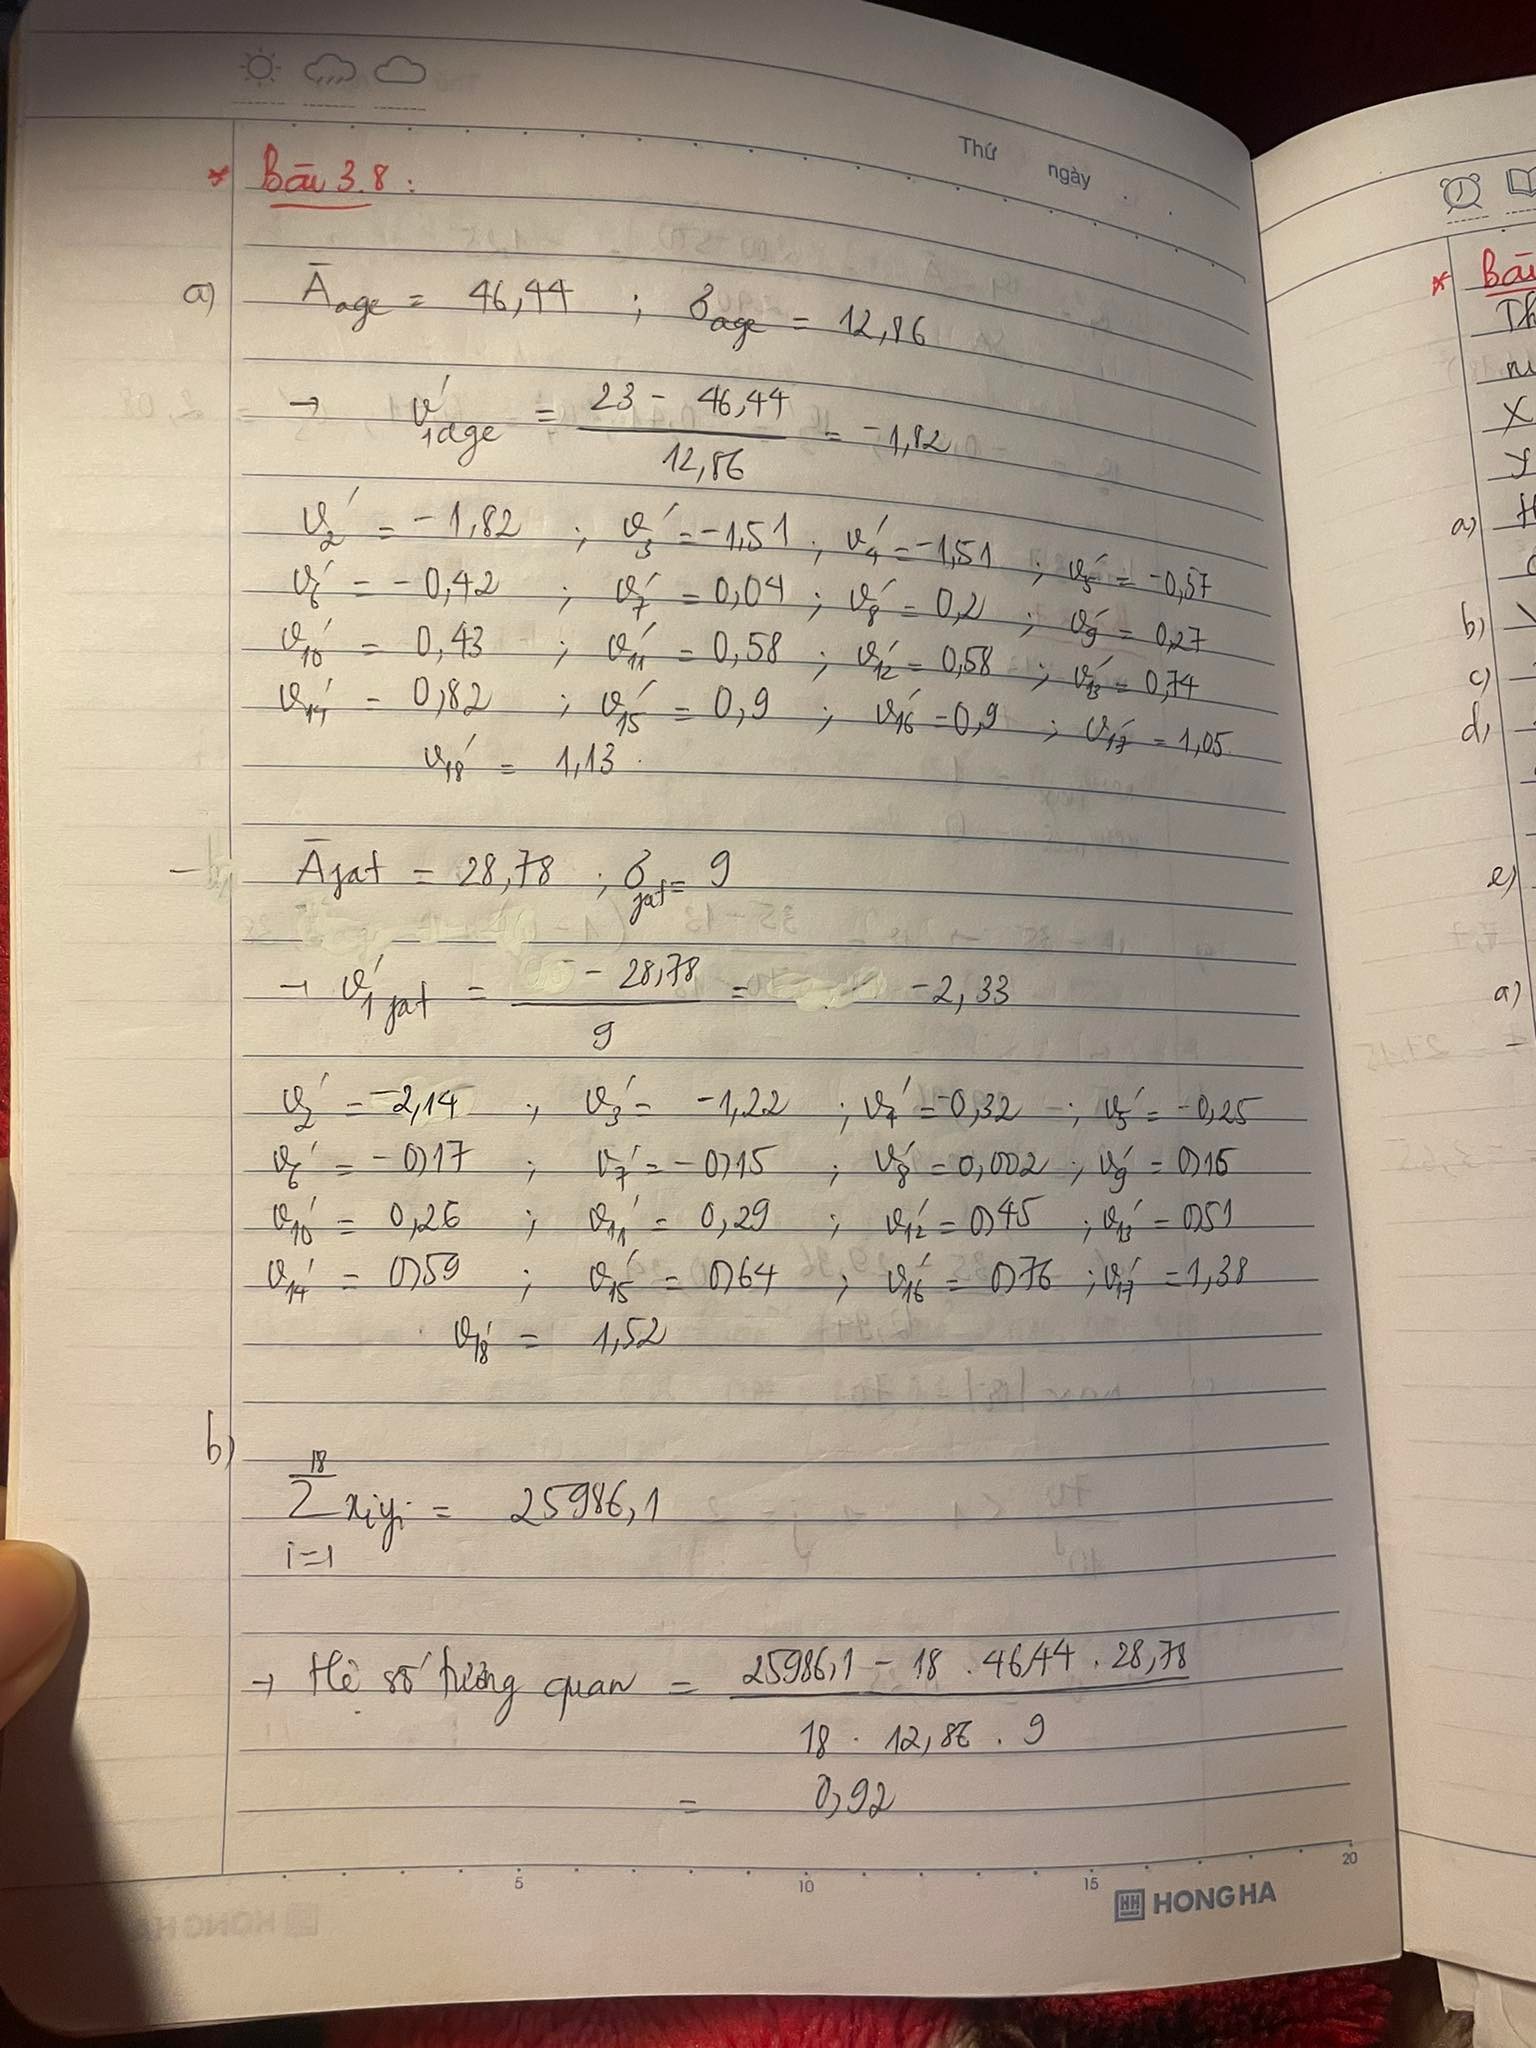 Thứ ngày
* Bài 3.8 :
a) Ā age = 46,44 ; σ age = 12,86
→ v'1age = (23 - 46,44) / 12,86 = -1,82
v2' = -1,82 ; v3' = -1,51 ; v4' = -1,51 ; v5' = -0,57
v6' = -0,42 ; v7' = 0,04 ; v8' = 0,2 ; v9' = 0,27
v10' = 0,43 ; v11' = 0,58 ; v12' = 0,58 ; v13' = 0,74
v14' = 0,82 ; v15' = 0,9 ; v16' = 0,9 ; v17' = 1,05
v18' = 1,13
- Ā fat = 28,78 ; σ fat = 9
→ v1' fat = - 28,78 / 9 = -2,33
v2' = -2,14 ; v3' = -1,22 ; v4' = -0,32 ; v5' = -0,25
v6' = -0,17 ; v7' = -0,15 ; v8' = 0,002 ; v9' = 0,15
v10' = 0,26 ; v11' = 0,29 ; v12' = 0,45 ; v13' = 0,51
v14' = 0,59 ; v15' = 0,64 ; v16' = 0,76 ; v17' = 1,38
v18' = 1,52
b) 18 Σ i=1 xiyi = 25986,1
→ Hệ số tương quan = (25986,1 - 18 . 46,44 . 28,78) / (18 . 12,86 . 9)
= 0,92
5 10 15 20
HH HONG HA
* Bài
X
Y
a)
b)
c)
d,
e)
a)
-